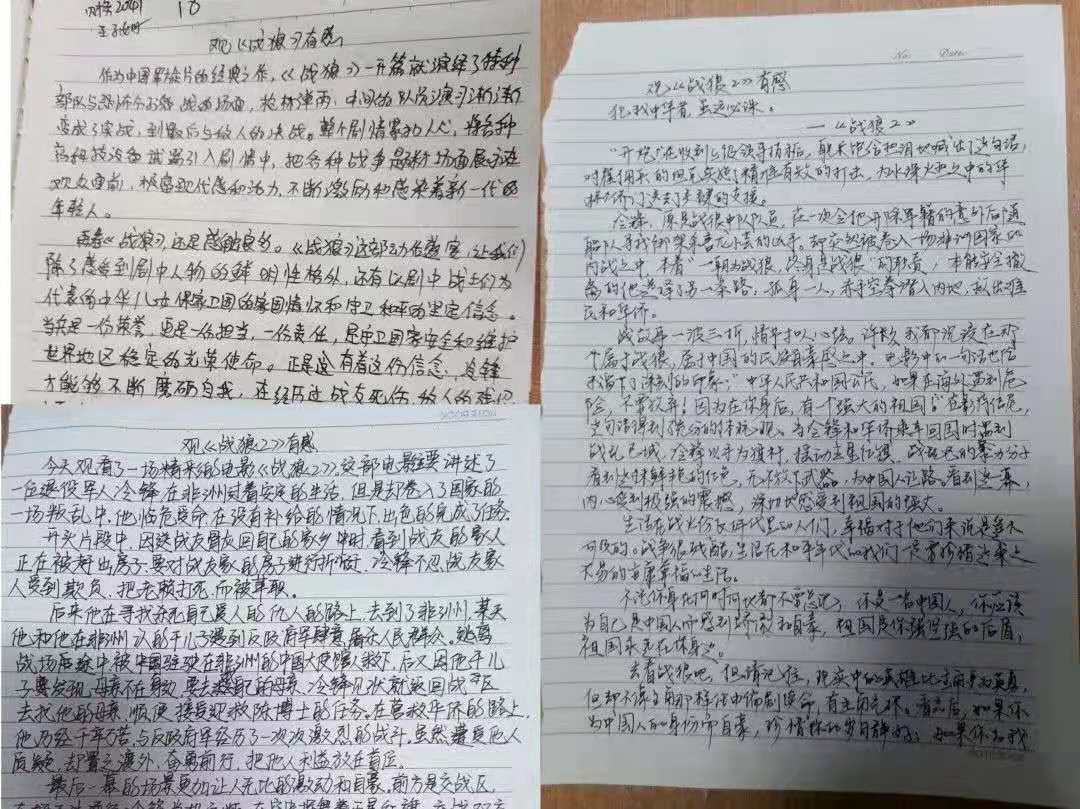 观《战狼》有感
作为中国军旅片的经典之作,《战狼》一开篇就演绎了特种
部队与恐怖分子的战的场面,枪林弹雨,中间的队员演习渐渐
变成了实战,到最后与敌人的决战。整个剧情紧扣人心,将各种
高科技设备武器引入剧情中,把各种战争最新场面展示在
观众面前,极富现代感和活力,不断激励和感染着新一代的
年轻人。
再看《战狼》,还是感触良多。《战狼》这部
除了感受到剧中人物的鲜明性格外,还有以剧中战士们为
代表的中华儿女保家卫国的家国情怀和守卫和平的坚定信念。
当兵是一份荣誉,更是一份担当,一份责任,是守卫国家安全和维护
世界地区稳定的光荣使命。正是这有着这份信念,冷锋
才能够不断磨砺自我,在经历过战友死伤、敌人的
观《战狼2》有感
今天观看了一场精采的电影《战狼2》,这部电影主要讲述了
一位退役军人冷锋在非洲过着安定的生活,但是却卷入了国家的
一场叛乱中,他临危受命在没有补给的情况下出色的完成了任务。
开头片段中,因送战友骨灰回自己的家乡中时,看到战友的家人
正在被赶出房子,要对战友家的房子进行拆迁,冷锋不忍战友家
人受到欺负,把老赖打死,而被革职。
后来他在寻找杀死自己爱人的仇人的路上,去到了非洲,某天
他和他在非洲认的干儿子遇到反政府军肆意屠杀人民群众。逃离
战场后途中被中国驻驶在非洲的中国大使馆人救下,后又因他干儿
子要发现,母亲不在身边,要去找自己的母亲,冷锋见状就返回战区
去找他的母亲,顺便接受拯救陈博士的任务。在营救华侨的路上,
他历经千辛万苦,与反政府军经历了一次次激烈的战斗。虽然遭受他人
质疑,却置之度外,奋勇前行,把他人利益放在首位。
最后一幕的场景更加让人无比的激动和自豪。前方是交战区
No. Date
观《战狼2》有感
犯我中华者,虽远必诛。
——《战狼2》
"开炮"在收到上级领导指施,舰长饱含把泪地喊出了这句话,
对雇佣兵的坦克实施了精准有效的打击,为水深火热之中的华
侨人侨了送去了关键的支援。
冷锋,原是战狼中队队员,在一次令他开除军籍的意外后随
船队寻找绑架未婚龙小云的凶手。却突然被卷入一场非洲国家的
内战之中,本着"一朝为战狼,终身是战狼"的职责,本能安全撤
离的他选择了另一条路,孤身一人,赤手空拳潜入内地,救出难
民和华侨。
战故事一波三折,情节扣人心弦。许多
个属于战狼,属于中国的民族自豪感之中。电影中的一句话也给
我留下了深刻的印象:"中华人民共和国公民,如果在海外遇到危
险,不要放弃!因为在你身后,有个强大的祖国!"在影片结尾,
这句话得到了充分的体现。当冷锋和华侨乘车回国时遇到
战乱区域,冷锋以手为旗杆,摆动五星红旗,战乱区的暴力分子
看到这抹鲜艳的红色,无不放下武器,为中国人让路。看到这一幕,
内心受到极强的震撼,深切地感受到祖国的强大。
生活在战火纷飞年代里的人们,幸福对于他们来说是遥不
可及的。战争很残酷,生活在和平年代的我们一定要珍惜这来之
不易的安康幸福的生活。
不论你身在何时何地都不要忘记,你是一名中国人,你应该
为自己是中国人而感到骄傲和自豪,祖国是你强坚强的后盾,
祖国永远在你身边。
去看战狼吧,但请记住,现实中的英雄比主角更为英勇,
但却不像主角那样
为中国人的身份而自豪,珍惜